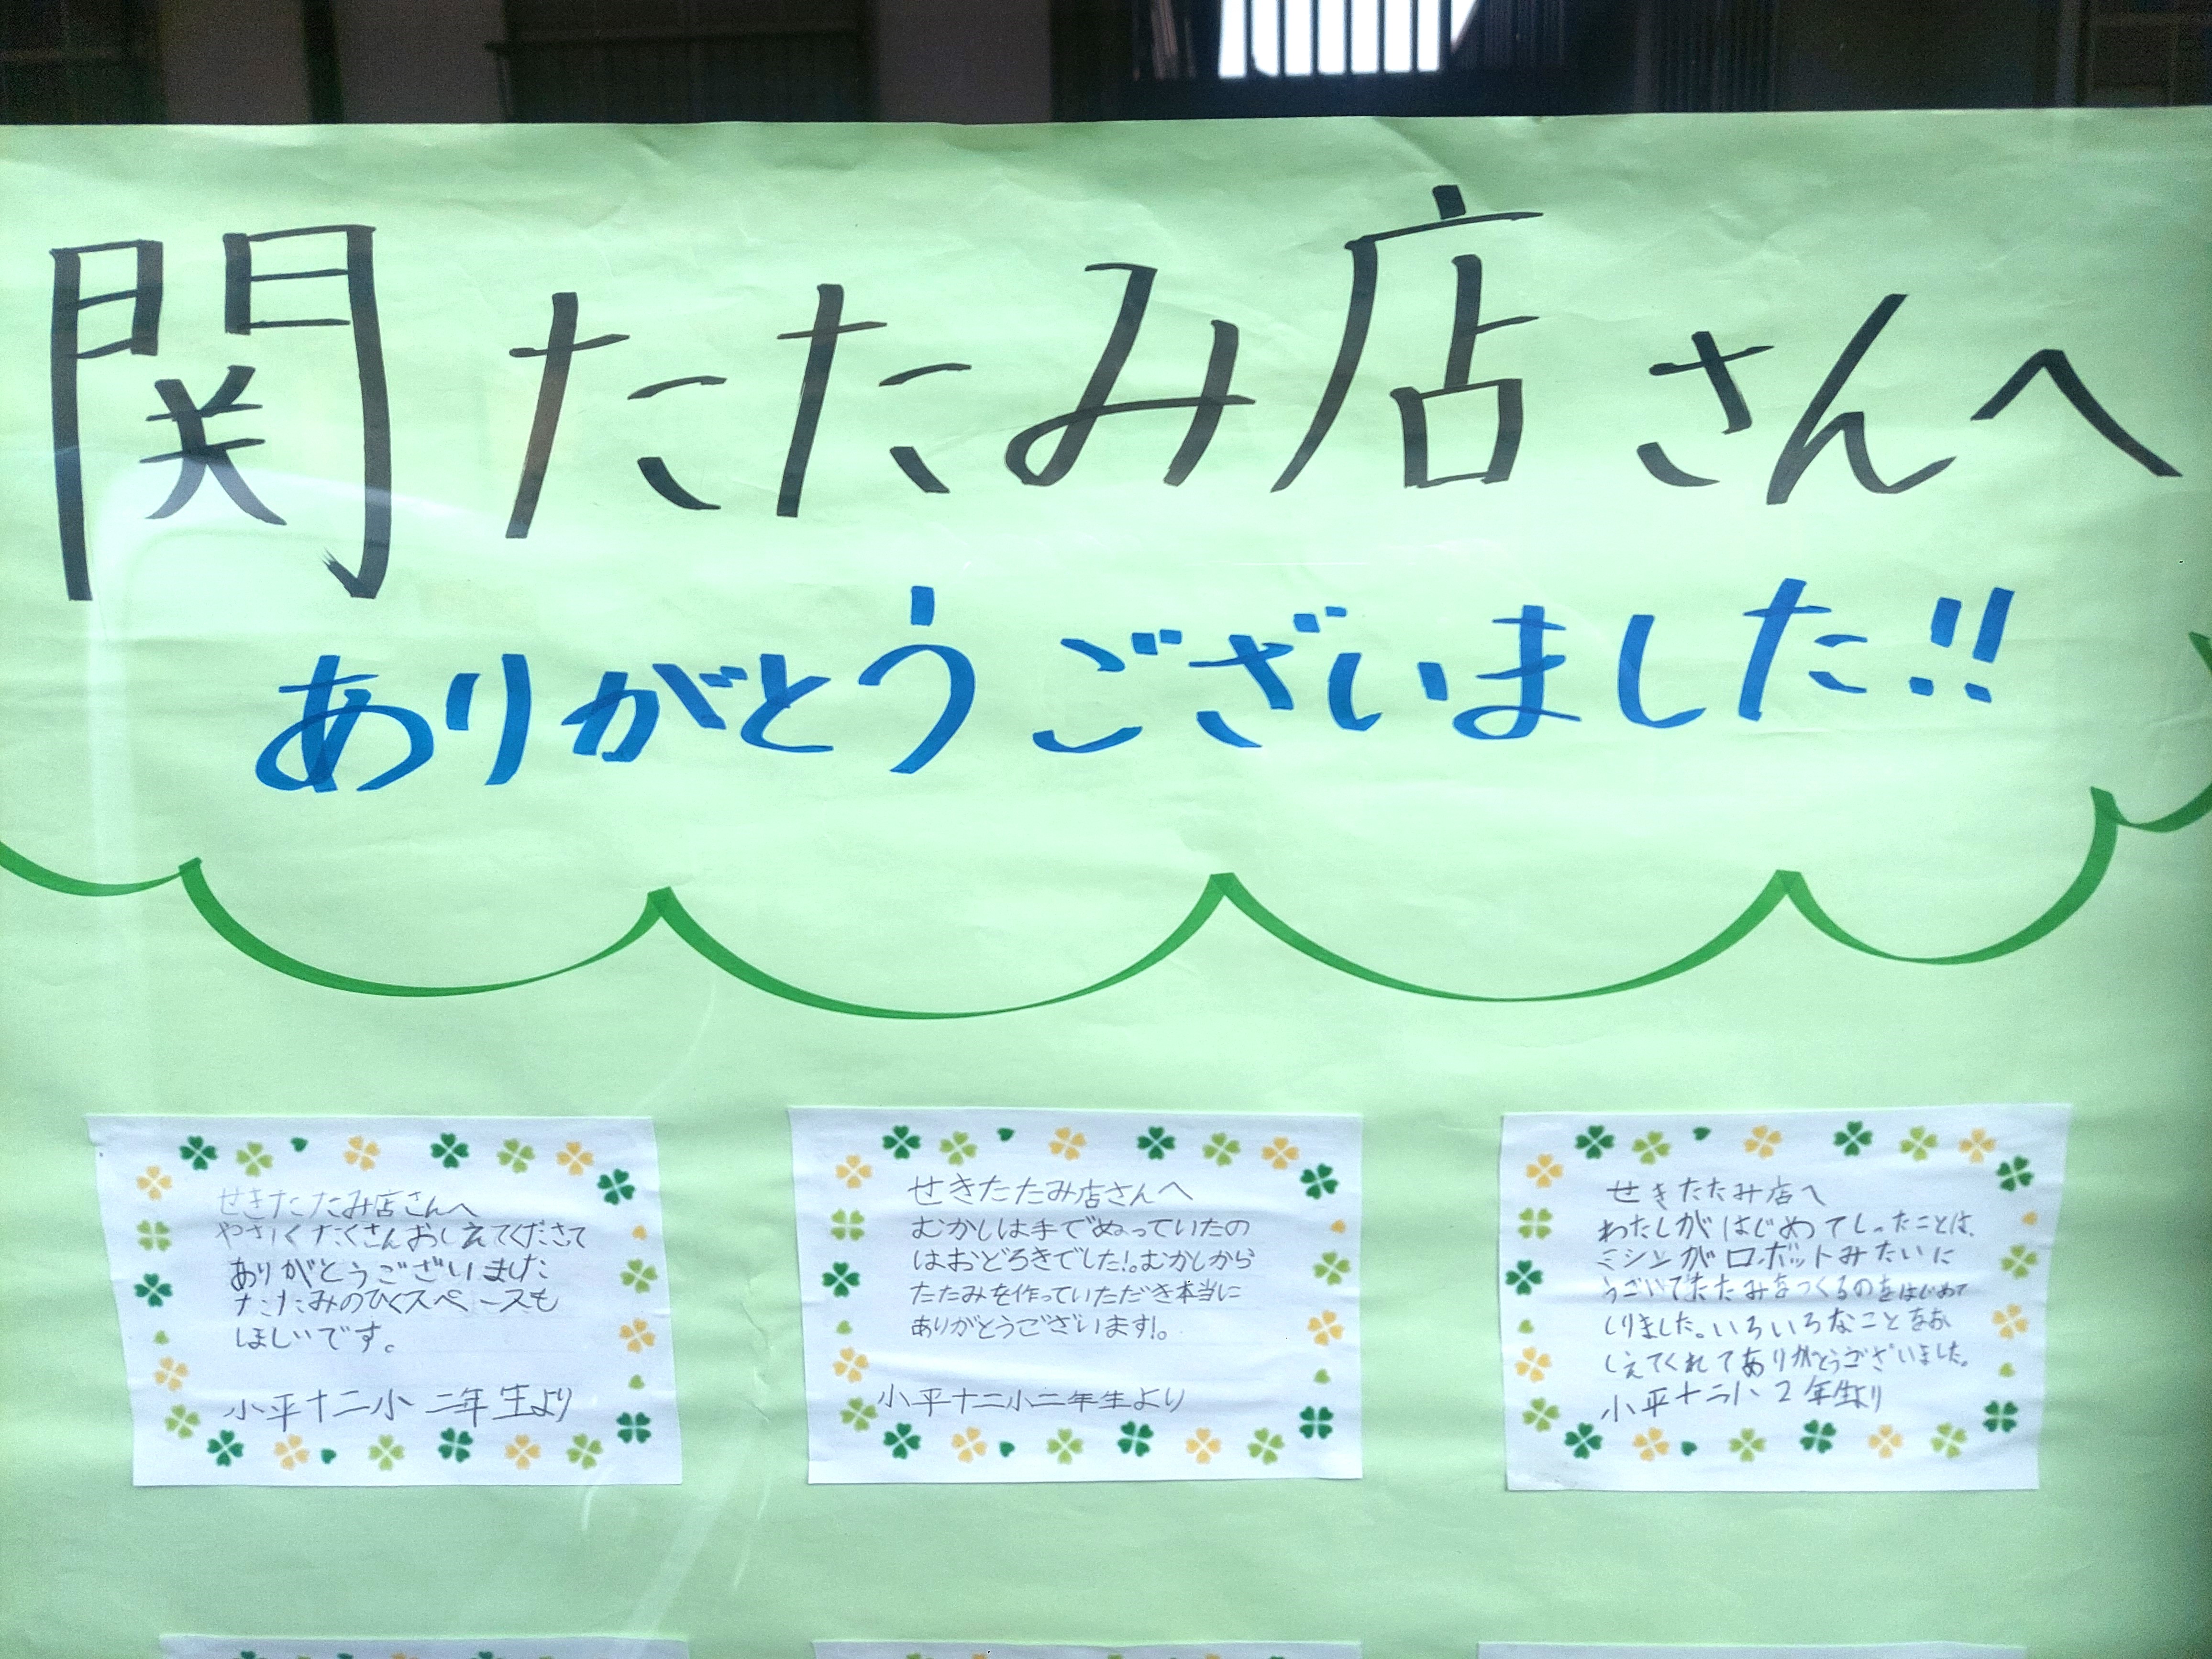 関たたみ店さんへ
ありがとうございました!!
せきたたみ店さんへ
やさしくたくさんおしえてくださて
ありがとうございました
たたみのひくスペースも
ほしいです。
小平十二小二年生より
せきたたみ店さんへ
むかしは手でぬっていたの
はおどろきでした!。むかしから
たたみを作っていただき本当に
ありがとうございます!。
小平十二小二年生より
せきたたみ店へ
わたしがはじめてしったことは、
ミシンがロボットみたいに
うごいてたたみをつくるのをはじめて
しりました。いろいろなことをお
しえてくれてありがとうございました。
小平十二小2年生より